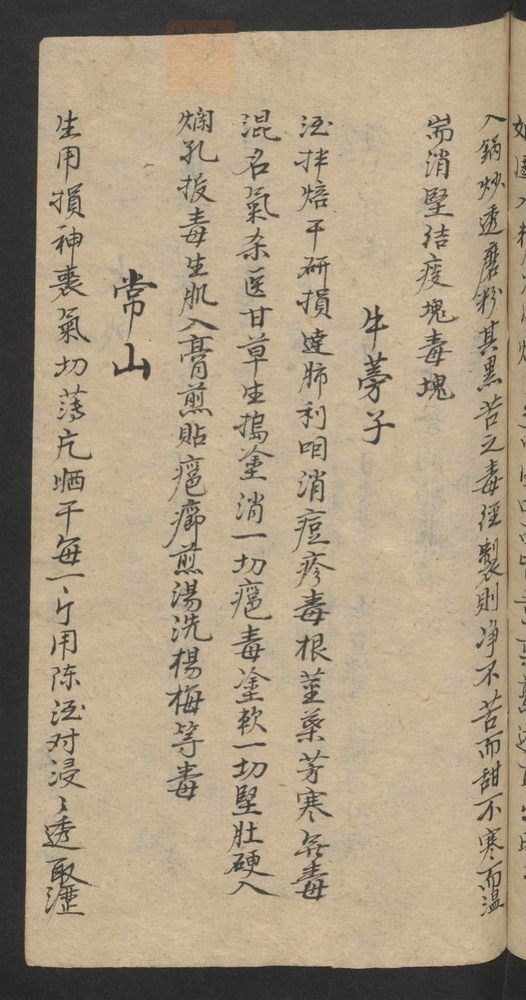 入鍋炒透磨粉其黑苦之毒經製則净不苦而甜不寒而溫
耑消堅結痰塊毒塊
牛蒡子
酒拌焙干研損達肺利咽消痘疹毒根莖葉芳寒無毒
混名氣杀医甘草生搗塗消一切瘡毒塗軟一切堅肚硬入
爛孔拔毒生肌入膏煎貼瘡癤煎湯洗楊梅等毒
常山
生用損神衰氣切薄片晒干每一斤用陈酒对浸〻透取瀝